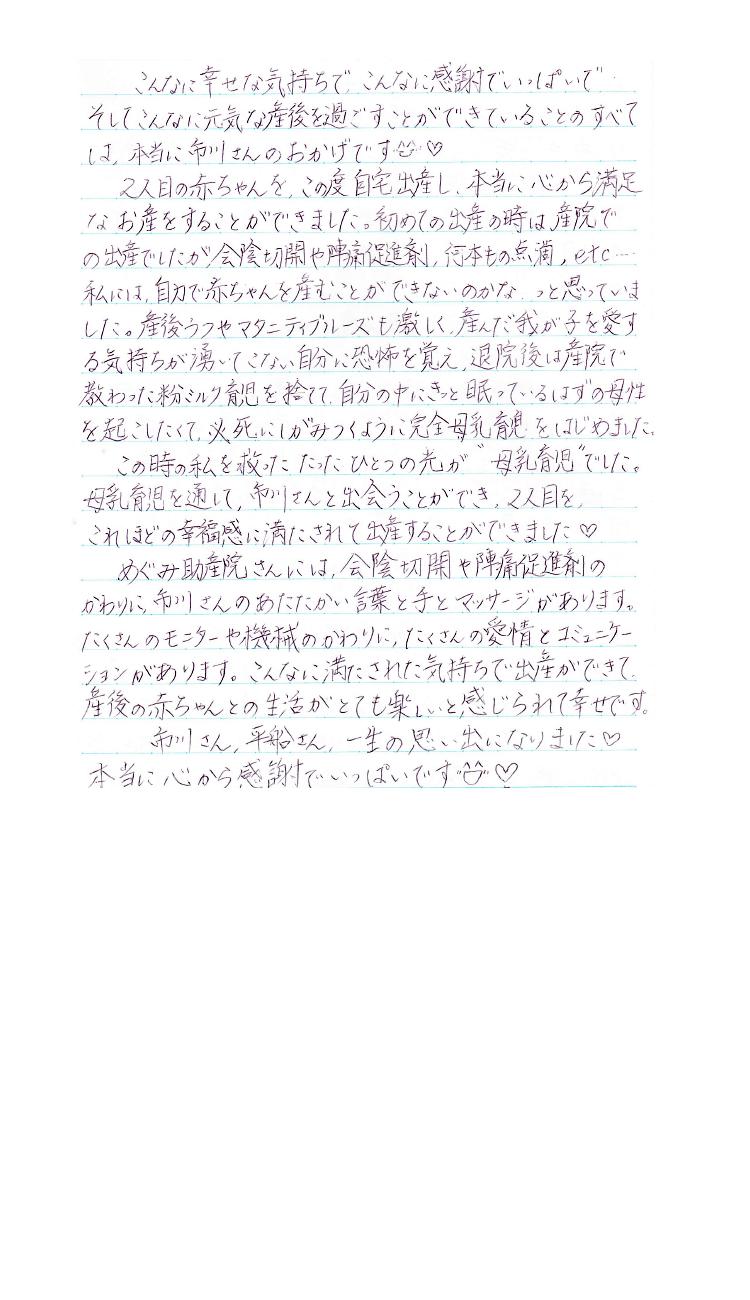 こんなに幸せな気持ちで、こんなに感謝でいっぱいで
そしてこんなに元気な産後を過ごすことができていることのすべて
は、本当に市川さんのおかげです♡
2人目の赤ちゃんを、この度自宅出産し、本当に心から満足
なお産をすることができました。初めての出産の時は、産院で
の出産でしたが会陰切開や陣痛促進剤、何本もの点滴、etc…
私には、自力で赤ちゃんを産むことができないのかな、っと思っていま
した。産後うつやマタニティブルーズも激しく、産んだ我が子を愛す
る気持ちが湧いてこない自分に恐怖を覚え、退院後は産院で
教わった粉ミルク育児を捨てて、自分の中にきっと眠っているはずの母性
を起こしたくて、必死にしがみつくように完全母乳育児をはじめました。
この時の私を救ったたったひとつの光が“母乳育児”でした。
母乳育児を通して、市川さんと出会うことができ、2人目を、
これほどの幸福感に満たされて出産することができました♡
めぐみ助産院さんには、会陰切開や陣痛促進剤の
かわりに、市川さんのあたたかい言葉と手とマッサージがあります。
たくさんのモニターや機械のかわりに、たくさんの愛情とコミュニケー
ションがあります。こんなに満たされた気持ちで出産ができて、
産後の赤ちゃんとの生活がとても楽しいと感じられて幸せです。
市川さん、平船さん、一生の思い出になりました♡
本当に心から感謝でいっぱいです♡